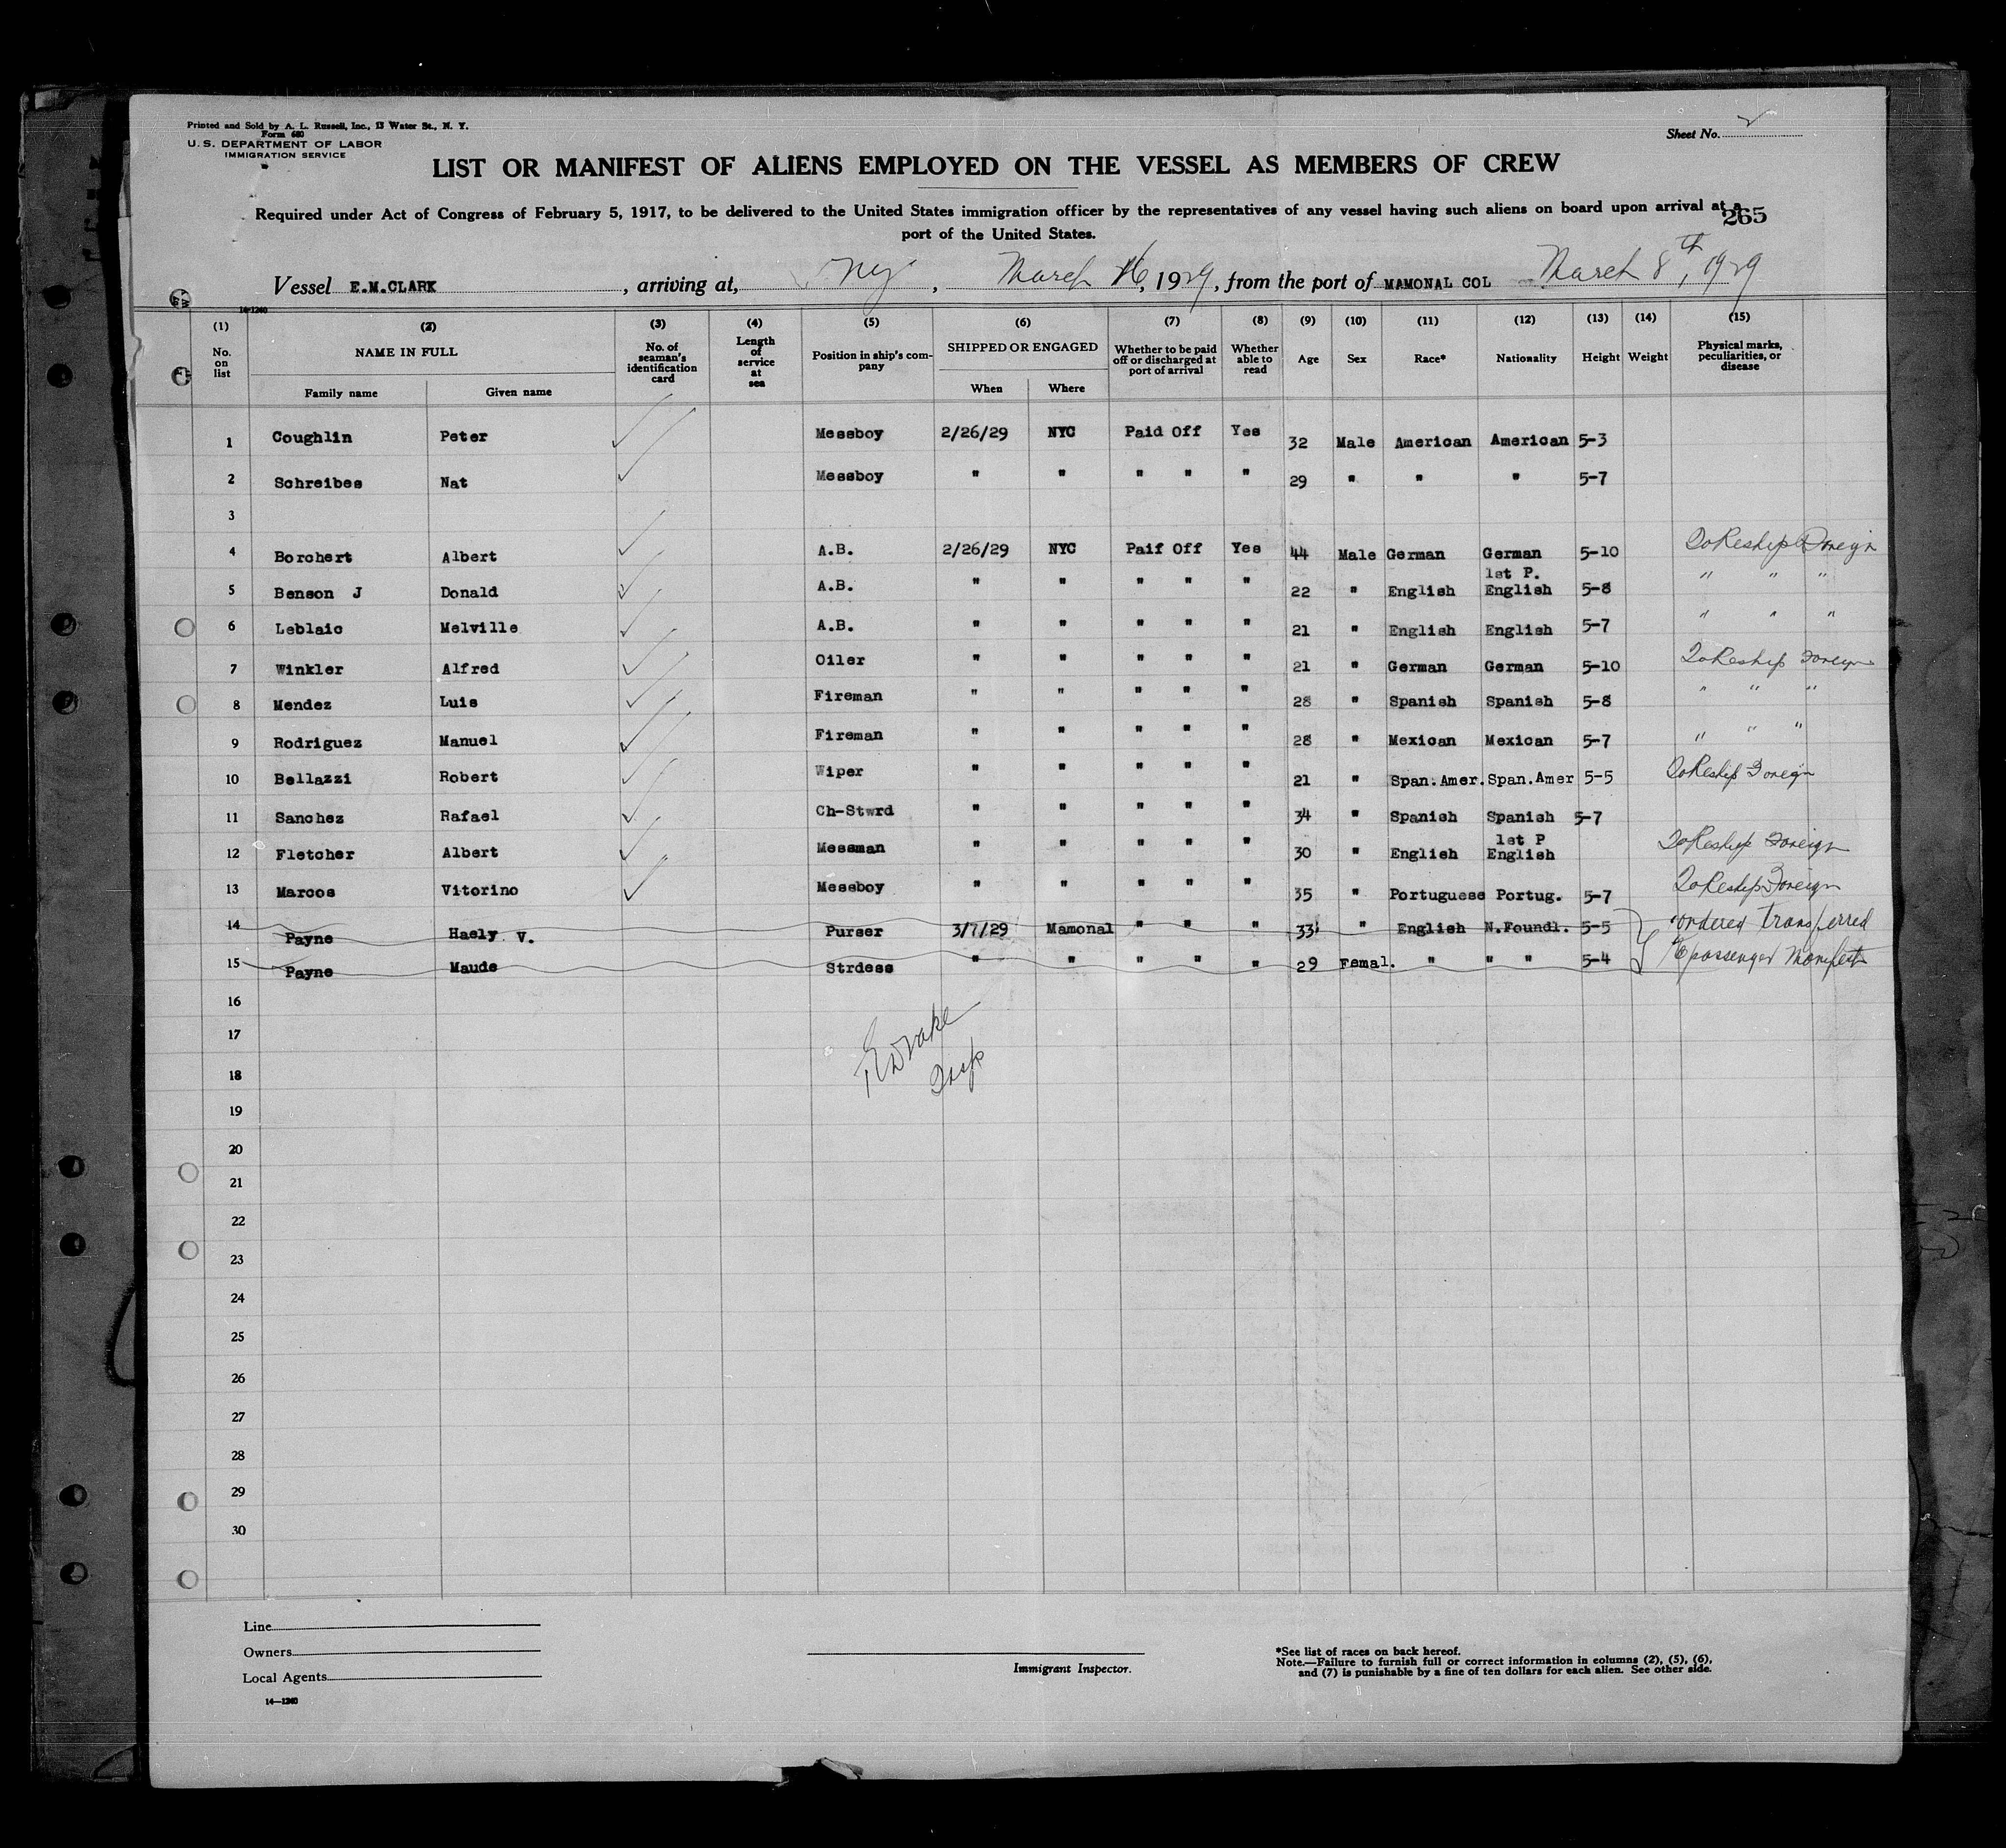 Printed and Sold by A. L. Russell, Inc., 13 Water St., N. Y.
Form 680
U. S. DEPARTMENT OF LABOR
IMMIGRATION SERVICE
Sheet No. 2
LIST OR MANIFEST OF ALIENS EMPLOYED ON THE VESSEL AS MEMBERS OF CREW
Required under Act of Congress of February 5, 1917, to be delivered to the United States immigration officer by the representatives of any vessel having such aliens on board upon arrival at a
265
port of the United States.
Vessel E.M.CLARK, arriving at, NY, March 16, 1929, from the port of MAMONAL COL March 8th, 1929
14-1240
(1) (2) (3) (4) (5) (6) (7) (8) (9) (10) (11) (12) (13) (14) (15)
No. on list NAME IN FULL No. of seaman's identification card Length of service at sea Position in ship's company SHIPPED OR ENGAGED Whether to be paid off or discharged at port of arrival Whether able to read Age Sex Race* Nationality Height Weight Physical marks, peculiarities, or disease
Family name Given name When Where
1 Coughlin Peter Messboy 2/26/29 NYC Paid Off Yes 32 Male American American 5-3
2 Schreibes Nat Messboy " " " " " 29 " " " 5-7
3
4 Borchert Albert A.B. 2/26/29 NYC Paif Off Yes 44 Male German German 5-10 To Reship Foreign
5 Benson J Donald A.B. " " " " " 22 " English 1st P. English 5-8 " " "
6 Leblaic Melville A.B. " " " " " 21 " English English 5-7 " " "
7 Winkler Alfred Oiler " " " " " 21 " German German 5-10 To Reship Foreign
8 Mendez Luis Fireman " " " " " 28 " Spanish Spanish 5-8 " " "
9 Rodriguez Manuel Fireman " " " " " 28 " Mexican Mexican 5-7 " " "
10 Bellazzi Robert Wiper " " " " " 21 " Span.Amer. Span.Amer 5-5 To Reship Foreign
11 Sanchez Rafael Ch-Stwrd " " " " " 34 " Spanish Spanish 5-7
12 Fletcher Albert Messman " " " " " 30 " English 1st P English To Reship Foreign
13 Marcos Vitorino Messboy " " " " " 35 " Portuguese Portug. 5-7 To Reship Foreign
14 Payne Haely V. Purser 3/7/29 Mamonal " " " 33 " English N.Foundl. 5-5 ordered transferred
15 Payne Maude Strdess " " " " " 29 Femal. " " " 5-4 to passenger Manifest
16
17
Drake
Insp
18
19
20
21
22
23
24
25
26
27
28
29
30
Line
Owners
Local Agents
14—1240
Immigrant Inspector.
*See list of races on back hereof.
Note.—Failure to furnish full or correct information in columns (2), (5), (6),
and (7) is punishable by a fine of ten dollars for each alien. See other side.